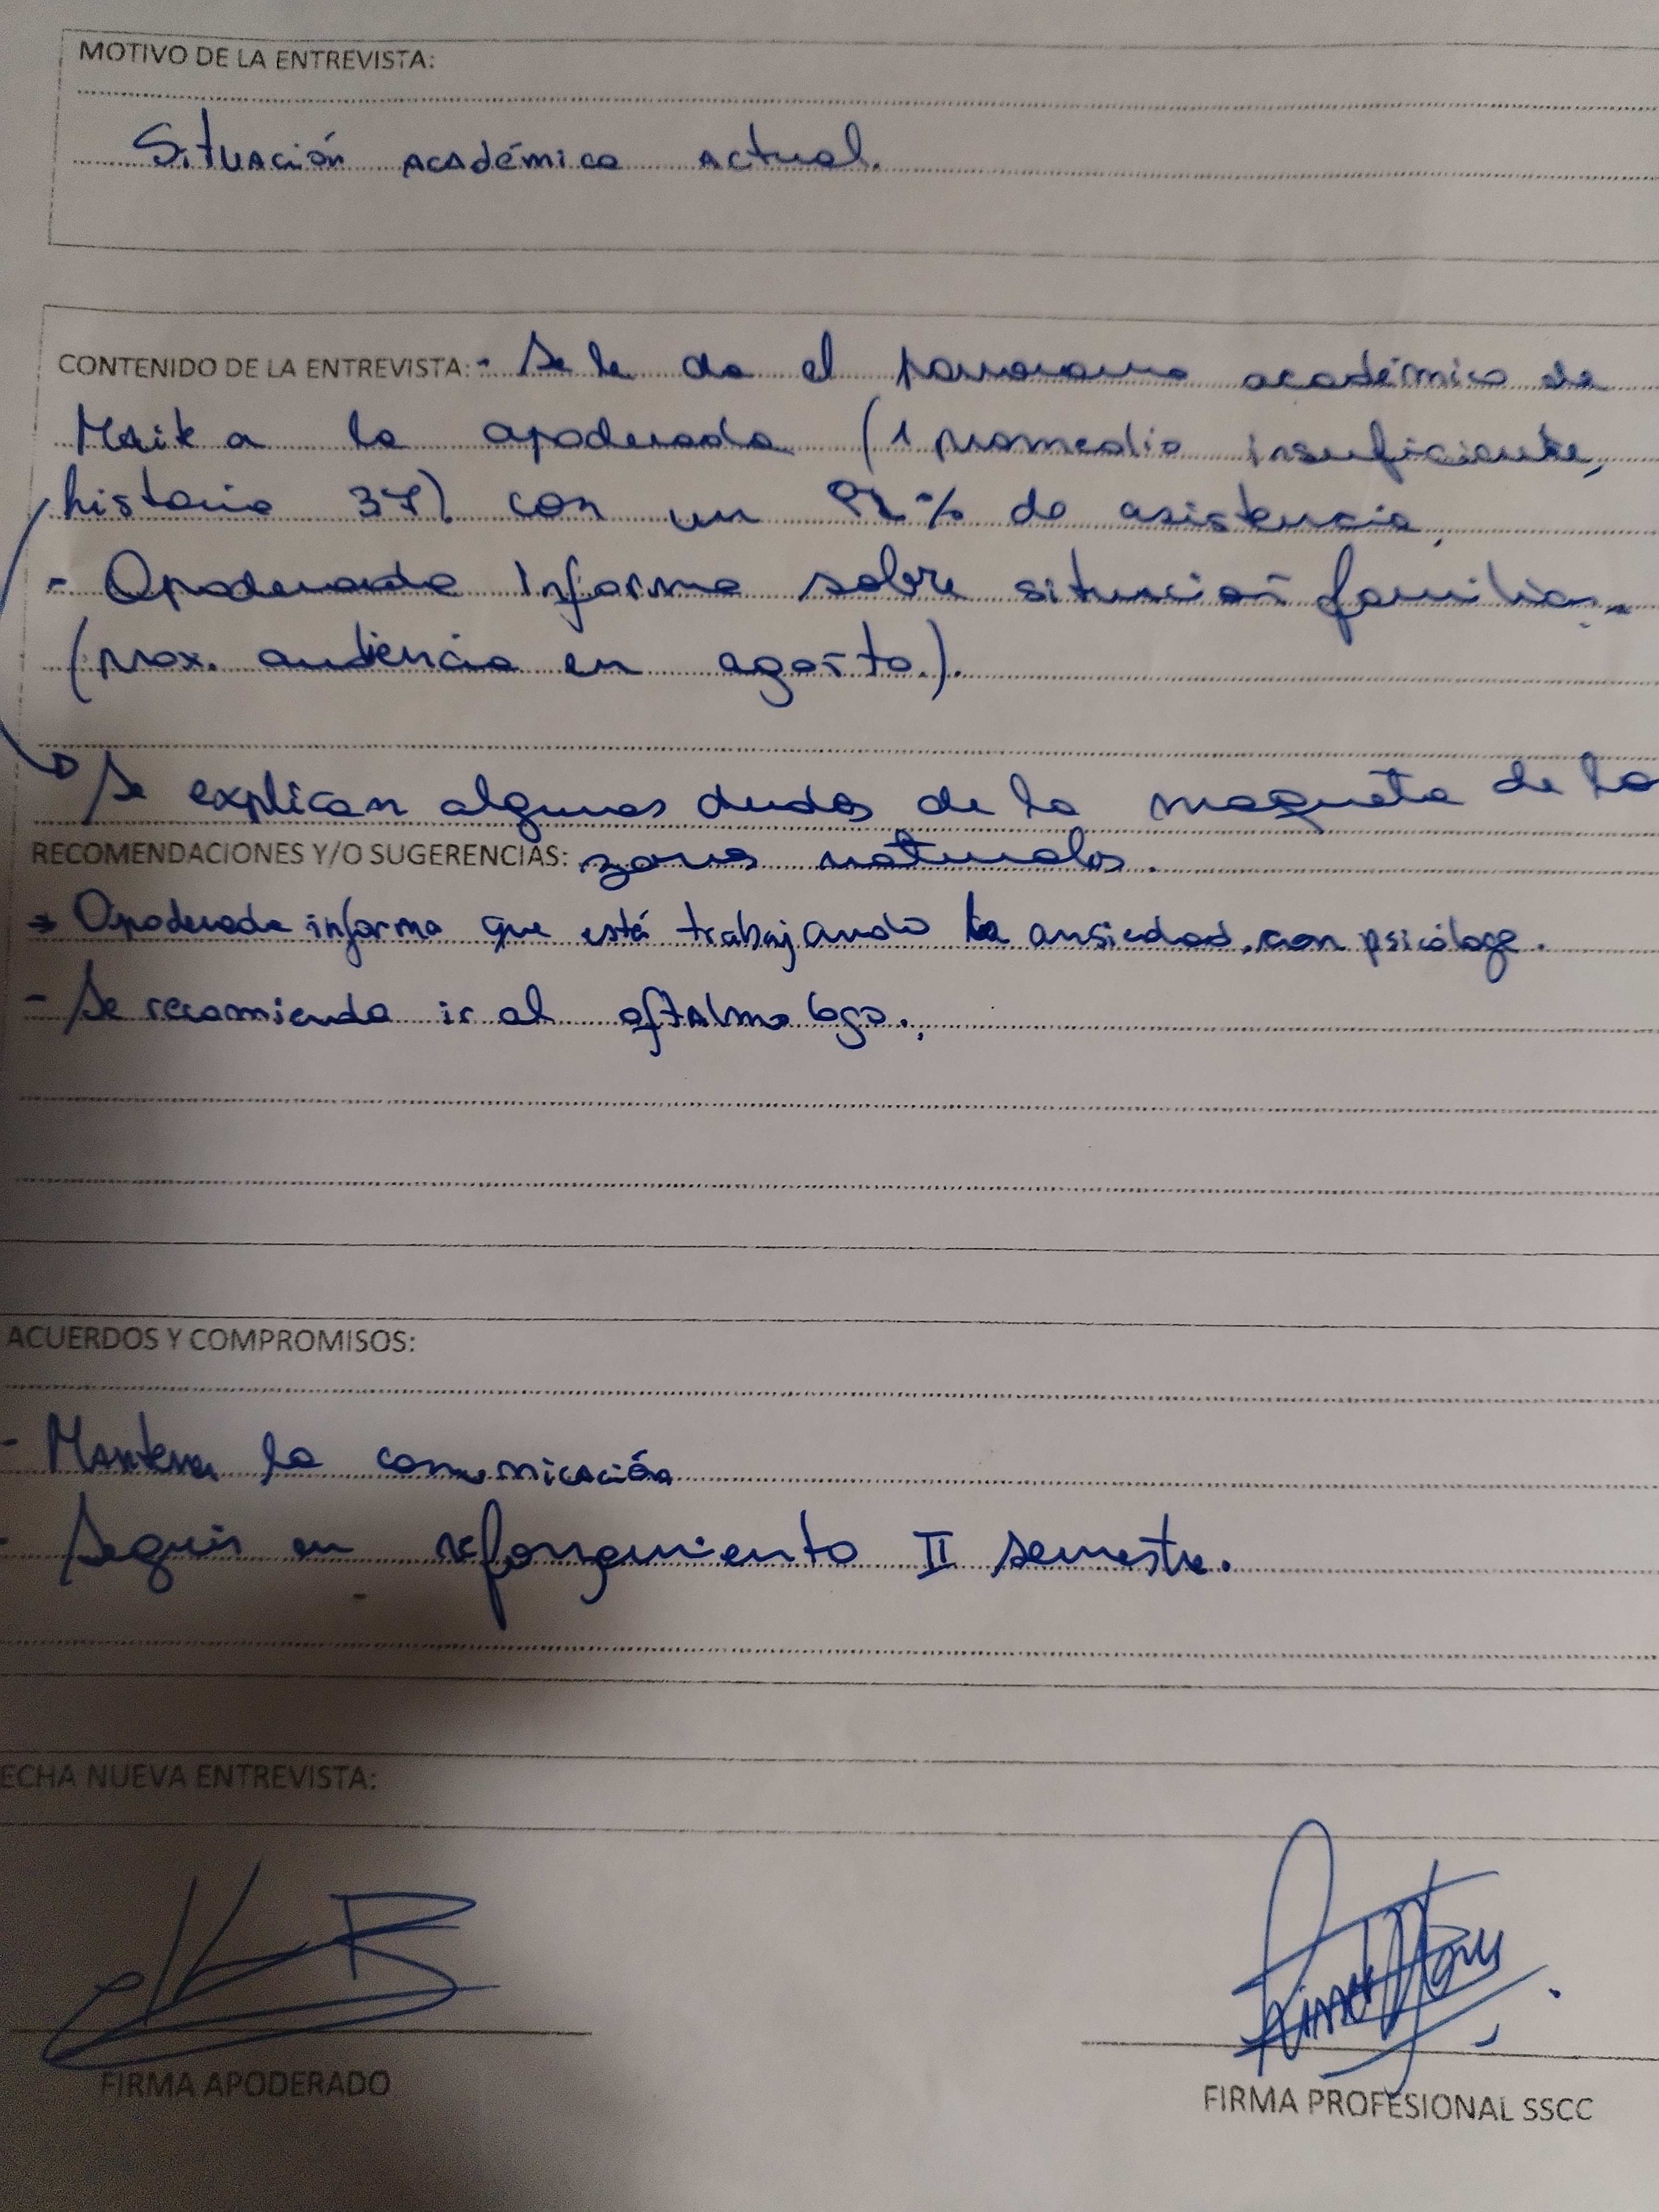 MOTIVO DE LA ENTREVISTA:
Situación académica actual.
CONTENIDO DE LA ENTREVISTA: - Se le da el panorama académico de
Maik a la apoderada (1 promedio insuficiente,
historia 37) con un % de asistencia.
- Apoderada informa sobre situación familiar.
(prox. audiencia en agosto.).
Se explican algunas dudas de la maqueta de la
RECOMENDACIONES Y/O SUGERENCIAS: zonas naturales.
Apoderada informa que está trabajando la ansiedad, con psicóloga.
- Se recomienda ir al oftalmologo.
ACUERDOS Y COMPROMISOS:
- Mantener la comunicación
- Seguir en reforzamiento II semestre.
ECHA NUEVA ENTREVISTA:
FIRMA APODERADO
FIRMA PROFESIONAL SSCC